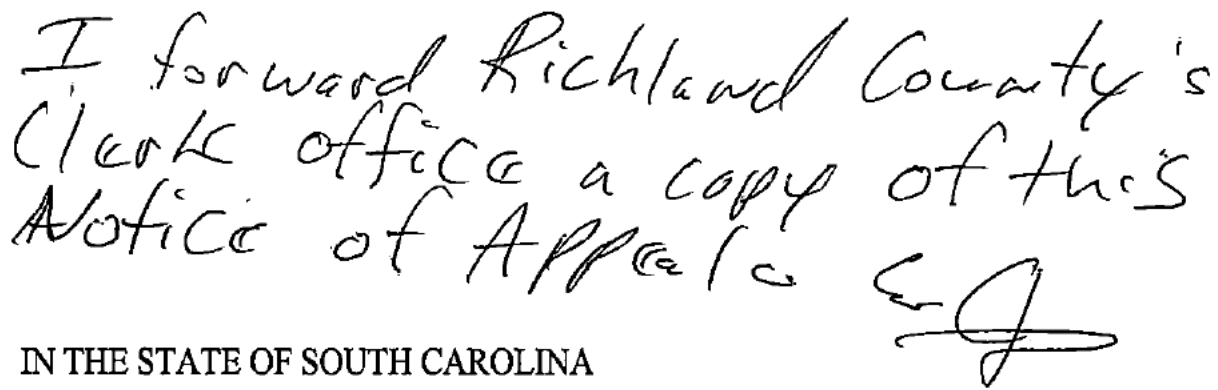 I forward Richland County's
Clerk office a copy of this
Notice of Appeal.
IN THE STATE OF SOUTH CAROLINA